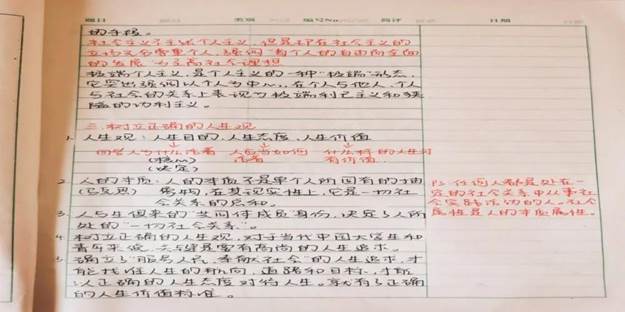 的手段。
社会主义不主张个人主义，但是
的发展"为主高社会理想
极端个人主义，是个人主义的一种"极端"形态，
它突出强调以个人为中心，在个人与他人、个人
与社会的关系上表现为极端利己主义和狭
隘的功利主义。
三.树立正确的人生观
1. 人生观：人生目的，人生态度，人生价值
回答人为什么活着 人应当如何 什么样的人生对
(核心) 活着 有价值
(决定)
2. 人的本质：人的本质不是单个人所固有的抽
(马克思) 象物，在其现实性上，它是一切社
会关系的总和。
3. 人与生俱来的 身份，决定了人所
处的"一切社会关系"。
4. 树立正确的人生观，对于当代中国大学生和
青年来说，关键是要有高尚的人生追求。
5. 确立了"服务人民、奉献社会"的人生追求，才
能找准人生的航向、道路和目标，才能
以正确的人生态度对待人生。
的人生价值标准。
任何人都是处在一
定的社会关系中从事社
会实践活动的人。社会
属性是人的本质属性。